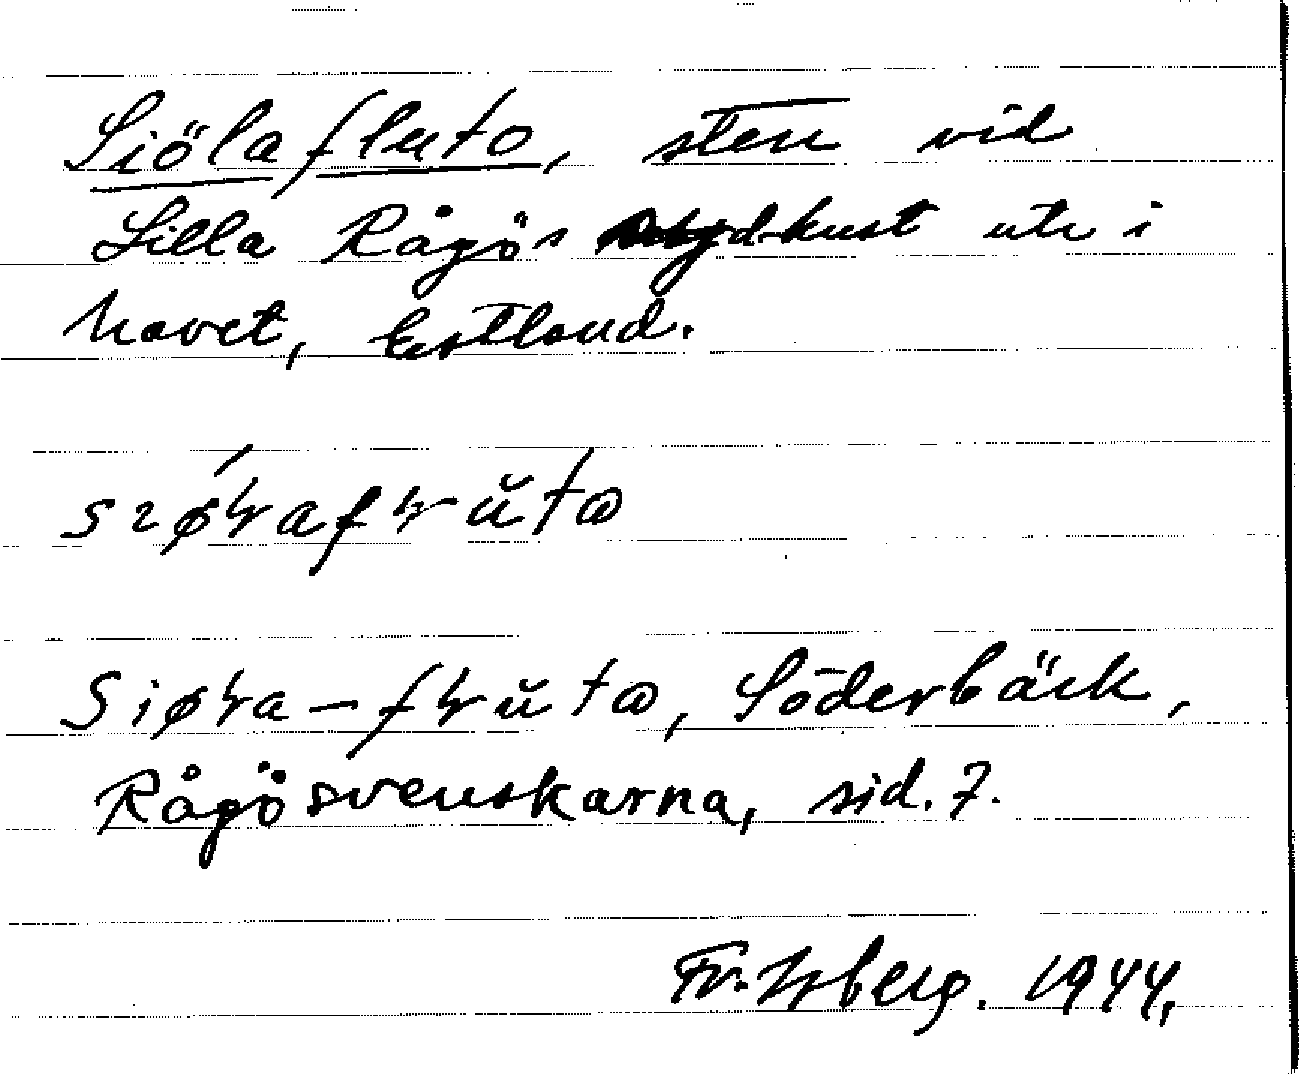 Siölafluto, sten vid
Lilla Rågös sydkust ute i
havet, Estland.
Siøɫa-fɫŭtɷ, Söderbäck,
Rågösvenskarna, sid. 7.
Fr. Hjberg. 1944.